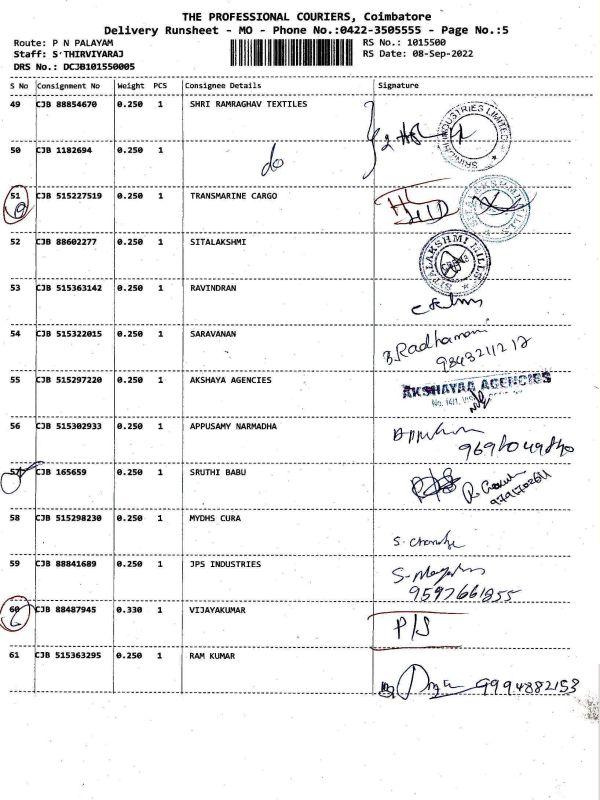 THE PROFESSIONAL COURIERS, Coimbatore
Delivery Runsheet - MO - Phone No.:0422-3505555 - Page No.:5
Route: P N PALAYAM RS No.: 1015500
Staff: S THIRVIYARAJ RS Date: 08-Sep-2022
DRS No.: DCJB101550005
S No Consignment No Weight PCS Consignee Details Signature
49 CJB 88854670 0.250 1 SHRI RAMRAGHAV TEXTILES
INDUSTRIES LIMITED
50 CJB 1182694 0.250 1 do
51 CJB 515227519 0.250 1 TRANSMARINE CARGO
52 CJB 88602277 0.250 1 SITALAKSHMI SITALAKSHMI MILLS
53 CJB 515363142 0.250 1 RAVINDRAN
54 CJB 515322015 0.250 1 SARAVANAN B. Radhamani
9843211212
55 CJB 515297220 0.250 1 AKSHAYA AGENCIES AKSHAYAA AGENCIES
56 CJB 515302933 0.250 1 APPUSAMY NARMADHA
57 CJB 165659 0.250 1 SRUTHI BABU
58 CJB 515298230 0.250 1 MYDHS CURA
59 CJB 88841689 0.250 1 JPS INDUSTRIES
9597661855
60 CJB 88487945 0.330 1 VIJAYAKUMAR P/S
61 CJB 515363295 0.250 1 RAM KUMAR 9994882153